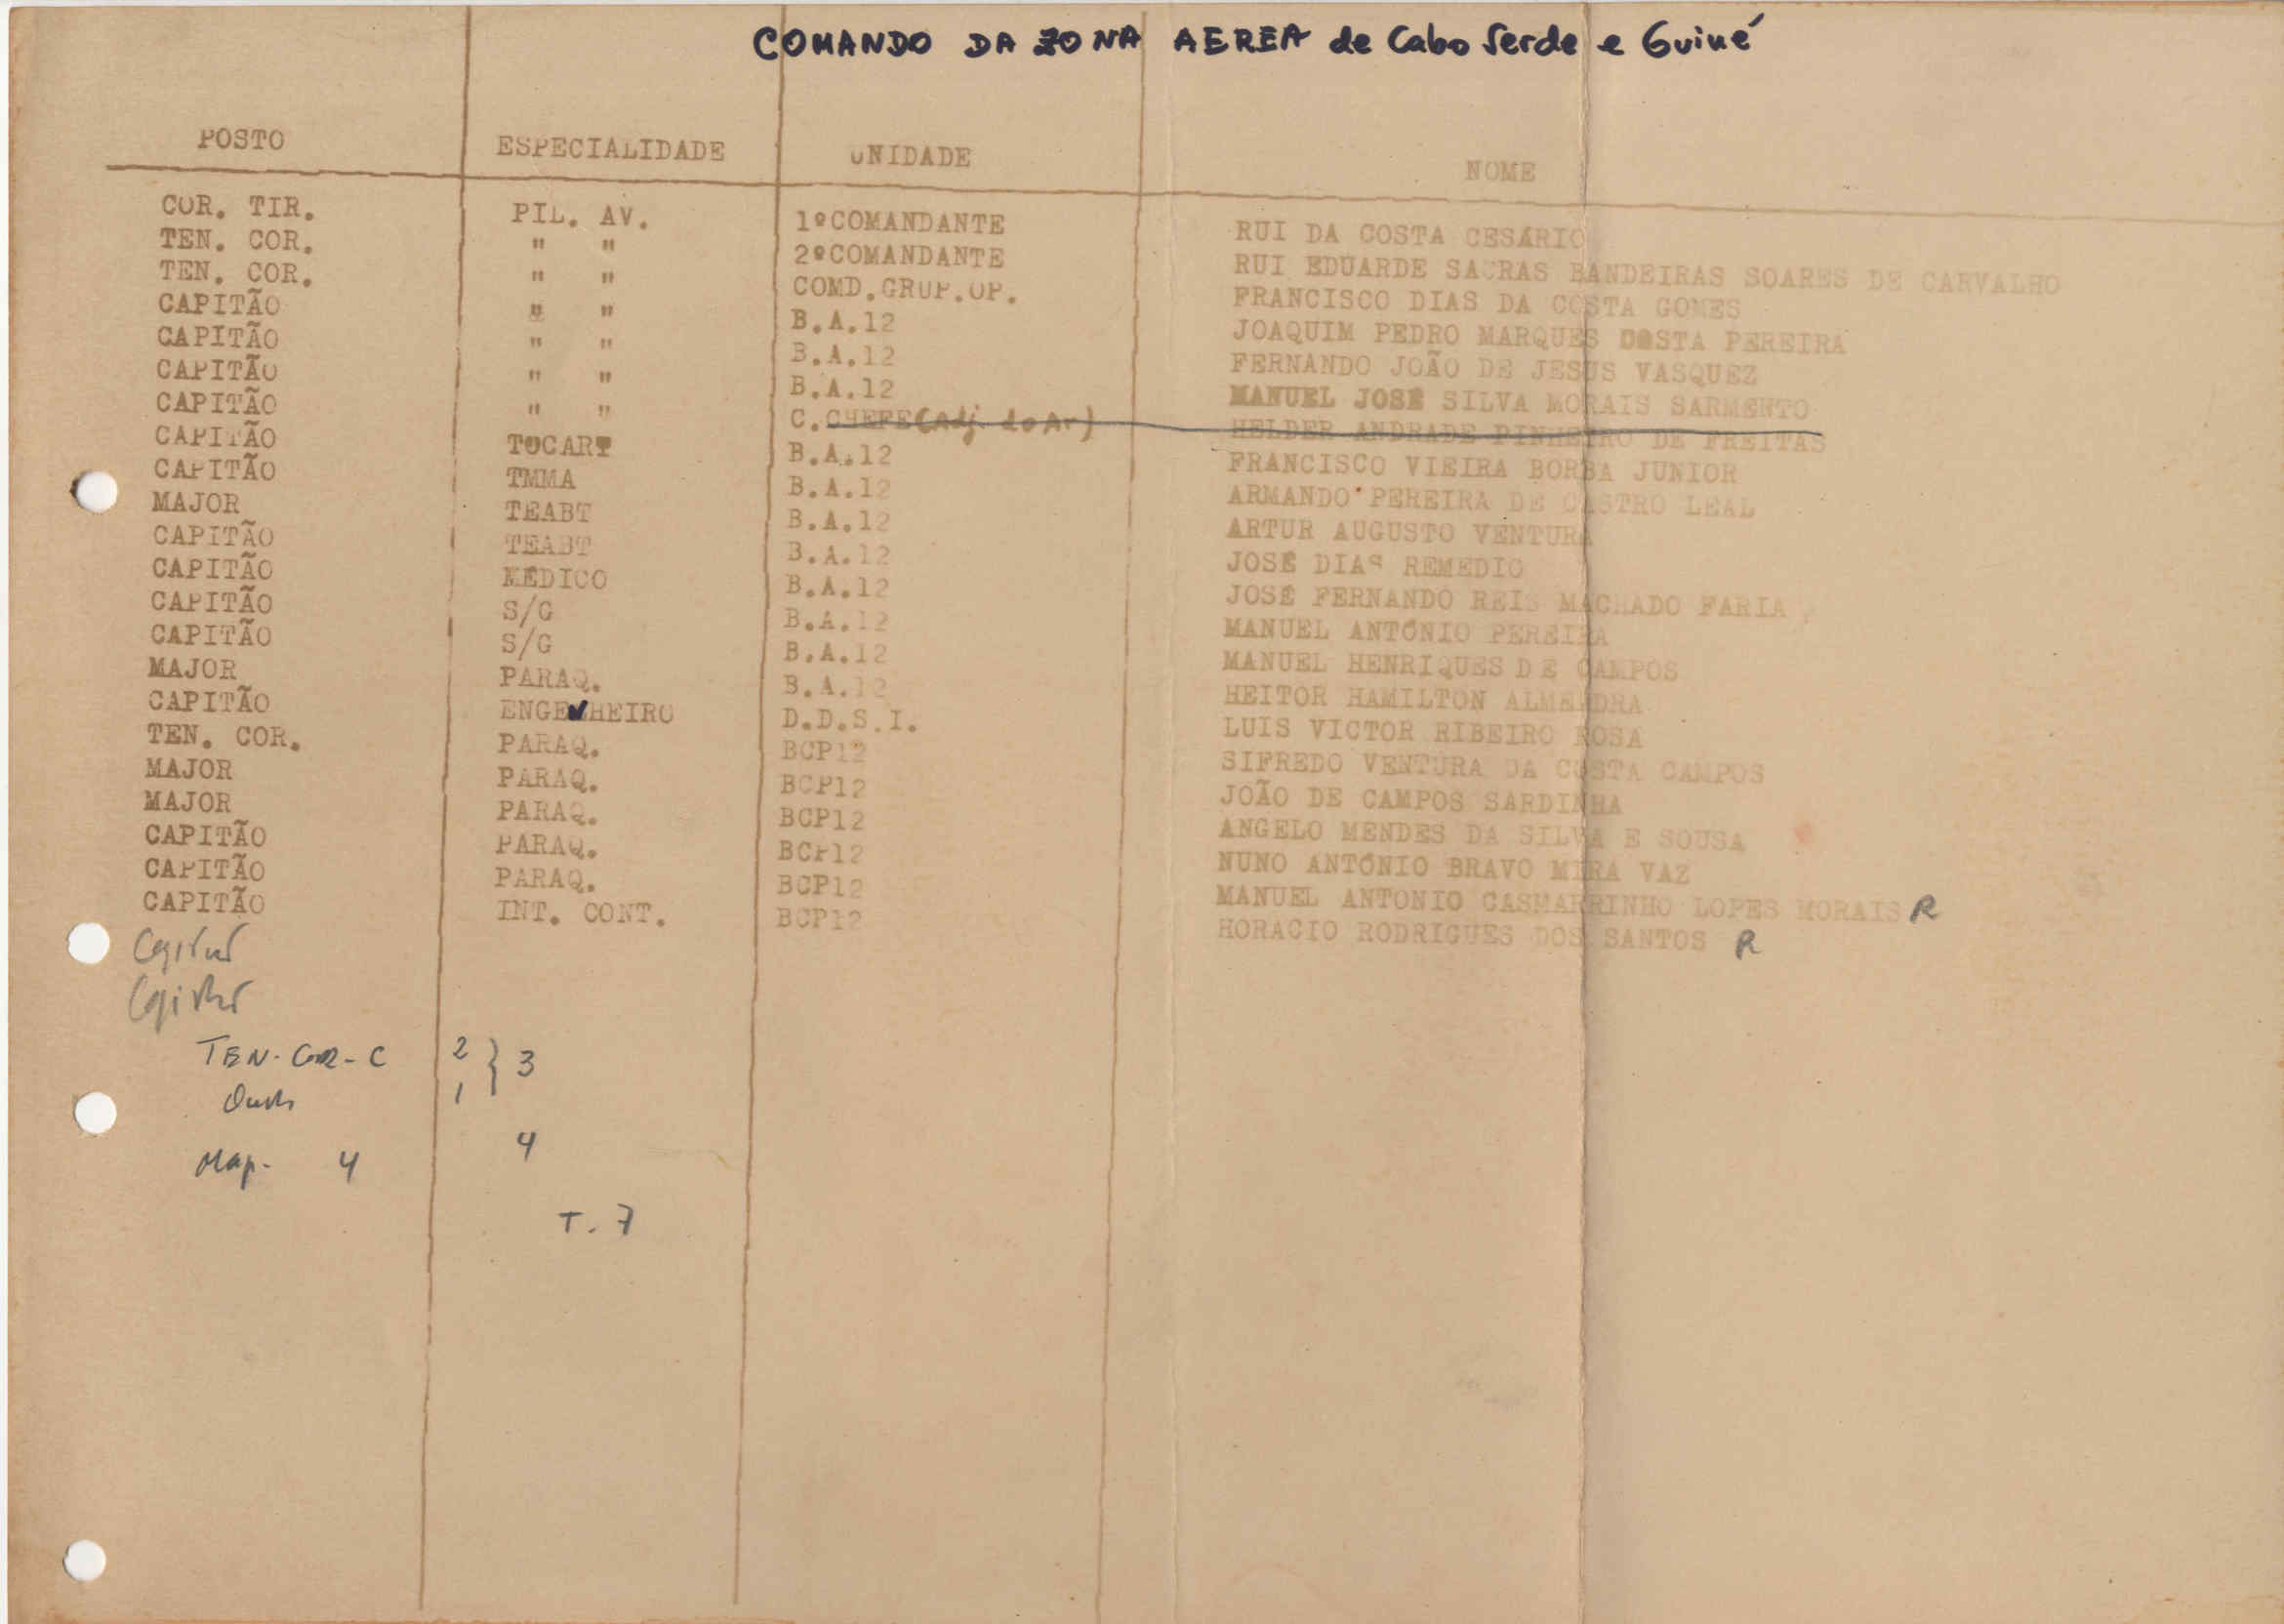 COMANDO DA ZONA AEREA de Cabo Verde e Guiné
POSTO ESPECIALIDADE UNIDADE NOME
COR. TIR. PIL. AV. 1ºCOMANDANTE RUI DA COSTA CESÁRIO
TEN. COR. " " 2ºCOMANDANTE RUI EDUARDE SACRAS BANDEIRAS SOARES DE CARVALHO
TEN. COR. " " COMD.GRUP.OP. FRANCISCO DIAS DA COSTA GOMES
CAPITÃO " " B.A.12 JOAQUIM PEDRO MARQUES COSTA PEREIRA
CAPITÃO " " B.A.12 FERNANDO JOÃO DE JESUS VASQUEZ
CAPITÃO " " B.A.12 MANUEL JOSÉ SILVA MORAIS SARMENTO
CAPITÃO " " C.CHEFE(Adj. do Ar) HELDER ANDRADE PINHEIRO DE FREITAS
CAPITÃO TOCART B.A.12 FRANCISCO VIEIRA BORBA JUNIOR
CAPITÃO TMMA B.A.12 ARMANDO PEREIRA DE CASTRO LEAL
MAJOR TEABT B.A.12 ARTUR AUGUSTO VENTURA
CAPITÃO TEABT B.A.12 JOSÉ DIAS REMEDIO
CAPITÃO MÉDICO B.A.12 JOSÉ FERNANDO REIS MACHADO FARIA
CAPITÃO S/G B.A.12 MANUEL ANTÓNIO PEREIRA
CAPITÃO S/G B.A.12 MANUEL HENRIQUES DE CAMPOS
MAJOR PARAQ. B.A.12 HEITOR HAMILTON ALMENDRA
CAPITÃO ENGENHEIRO D.D.S.I. LUIS VICTOR RIBEIRO ROSA
TEN. COR. PARAQ. BCP12 SIFREDO VENTURA DA COSTA CAMPOS
MAJOR PARAQ. BCP12 JOÃO DE CAMPOS SARDINHA
MAJOR PARAQ. BCP12 ANGELO MENDES DA SILVA E SOUSA
CAPITÃO PARAQ. BCP12 NUNO ANTÓNIO BRAVO MIRA VAZ
CAPITÃO PARAQ. BCP12 MANUEL ANTONIO CASMARRINHO LOPES MORAIS R
CAPITÃO INT. CONT. BCP12 HORACIO RODRIGUES DOS SANTOS R
TEN-COR-C 2 } 3
1
Maj. 4 4
T. 7